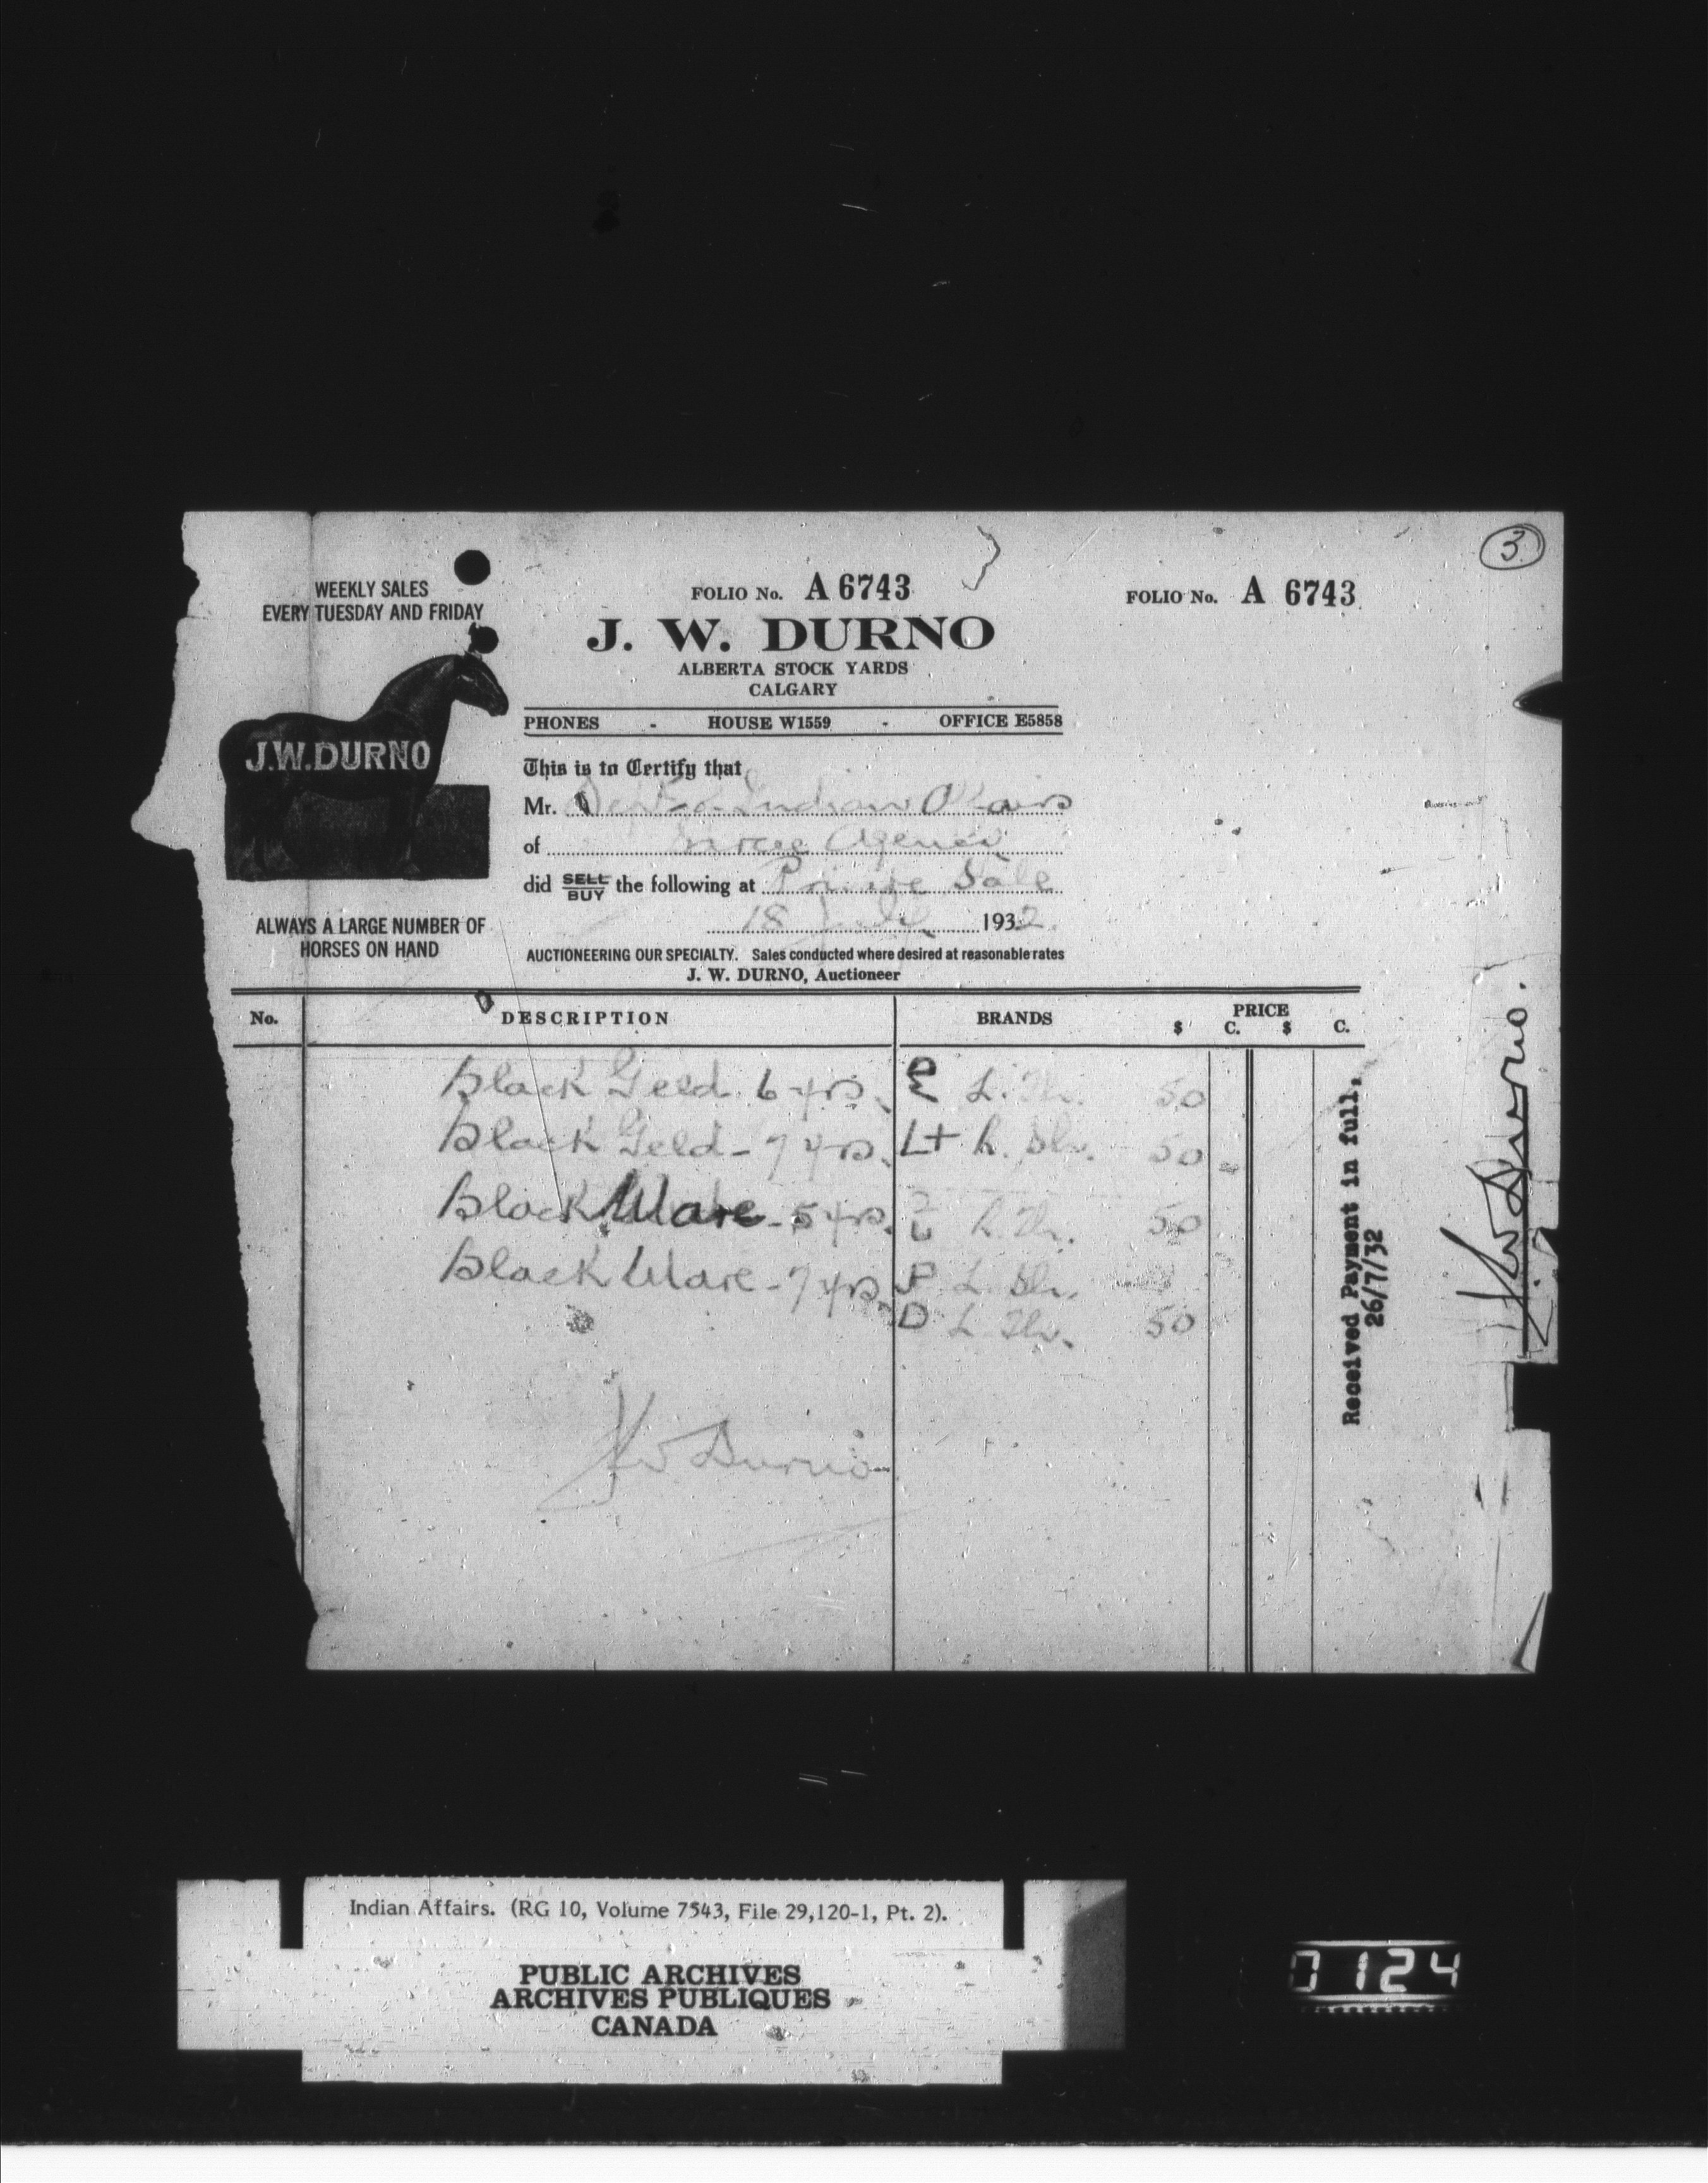 3
WEEKLY SALES
EVERY TUESDAY AND FRIDAY
J.W.DURNO
ALWAYS A LARGE NUMBER OF
HORSES ON HAND
FOLIO No. A 6743
FOLIO No. A 6743
J. W. DURNO
ALBERTA STOCK YARDS
CALGARY
PHONES - HOUSE W1559 - OFFICE E5858
This is to Certify that
Mr. Dept of Indian Affairs
of Sarcee Agency
did SELL/BUY the following at Private Sale
18 July 1932.
AUCTIONEERING OUR SPECIALTY. Sales conducted where desired at reasonable rates
J. W. DURNO, Auctioneer
No. DESCRIPTION BRANDS PRICE
$ C. $ C.
Black Geld. 6 yrs. L. Th. 50
Black Geld - 7 yrs. L+ R. Shr. 50
Black Mare - 5 yrs. R. Th. 50
Black Mare - 7 yrs. L. Shr.
D L. Th. 50
JW Durno
Received Payment in full.
26/7/32
JW Durno.
Indian Affairs. (RG 10, Volume 7543, File 29,120-1, Pt. 2).
PUBLIC ARCHIVES
ARCHIVES PUBLIQUES
CANADA
0124